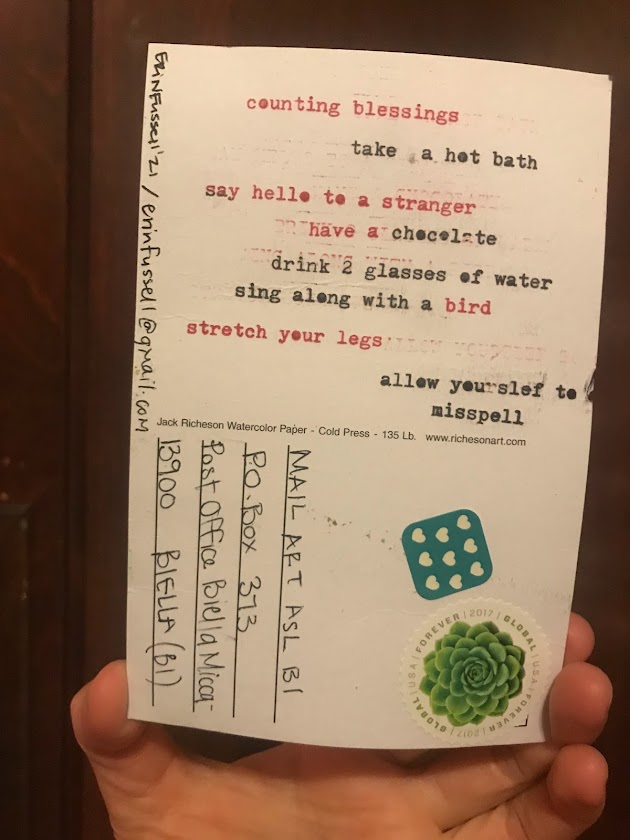 counting blessings
take a hot bath
say hello to a stranger
have a chocolate
drink 2 glasses of water
sing along with a bird
stretch your legs
allow yourslef to
misspell
Jack Richeson Watercolor Paper - Cold Press - 135 Lb. www.richesonart.com
ERINFUSSELL'21 / erinfussell@gmail.com
MAIL ART ASL BI
P.O. Box 373
Post Office Biella Micca-
13900 BIELLA (BI)
GLOBAL | USA | FOREVER | 2017 | GLOBAL | USA | FOREVER | 2017 |